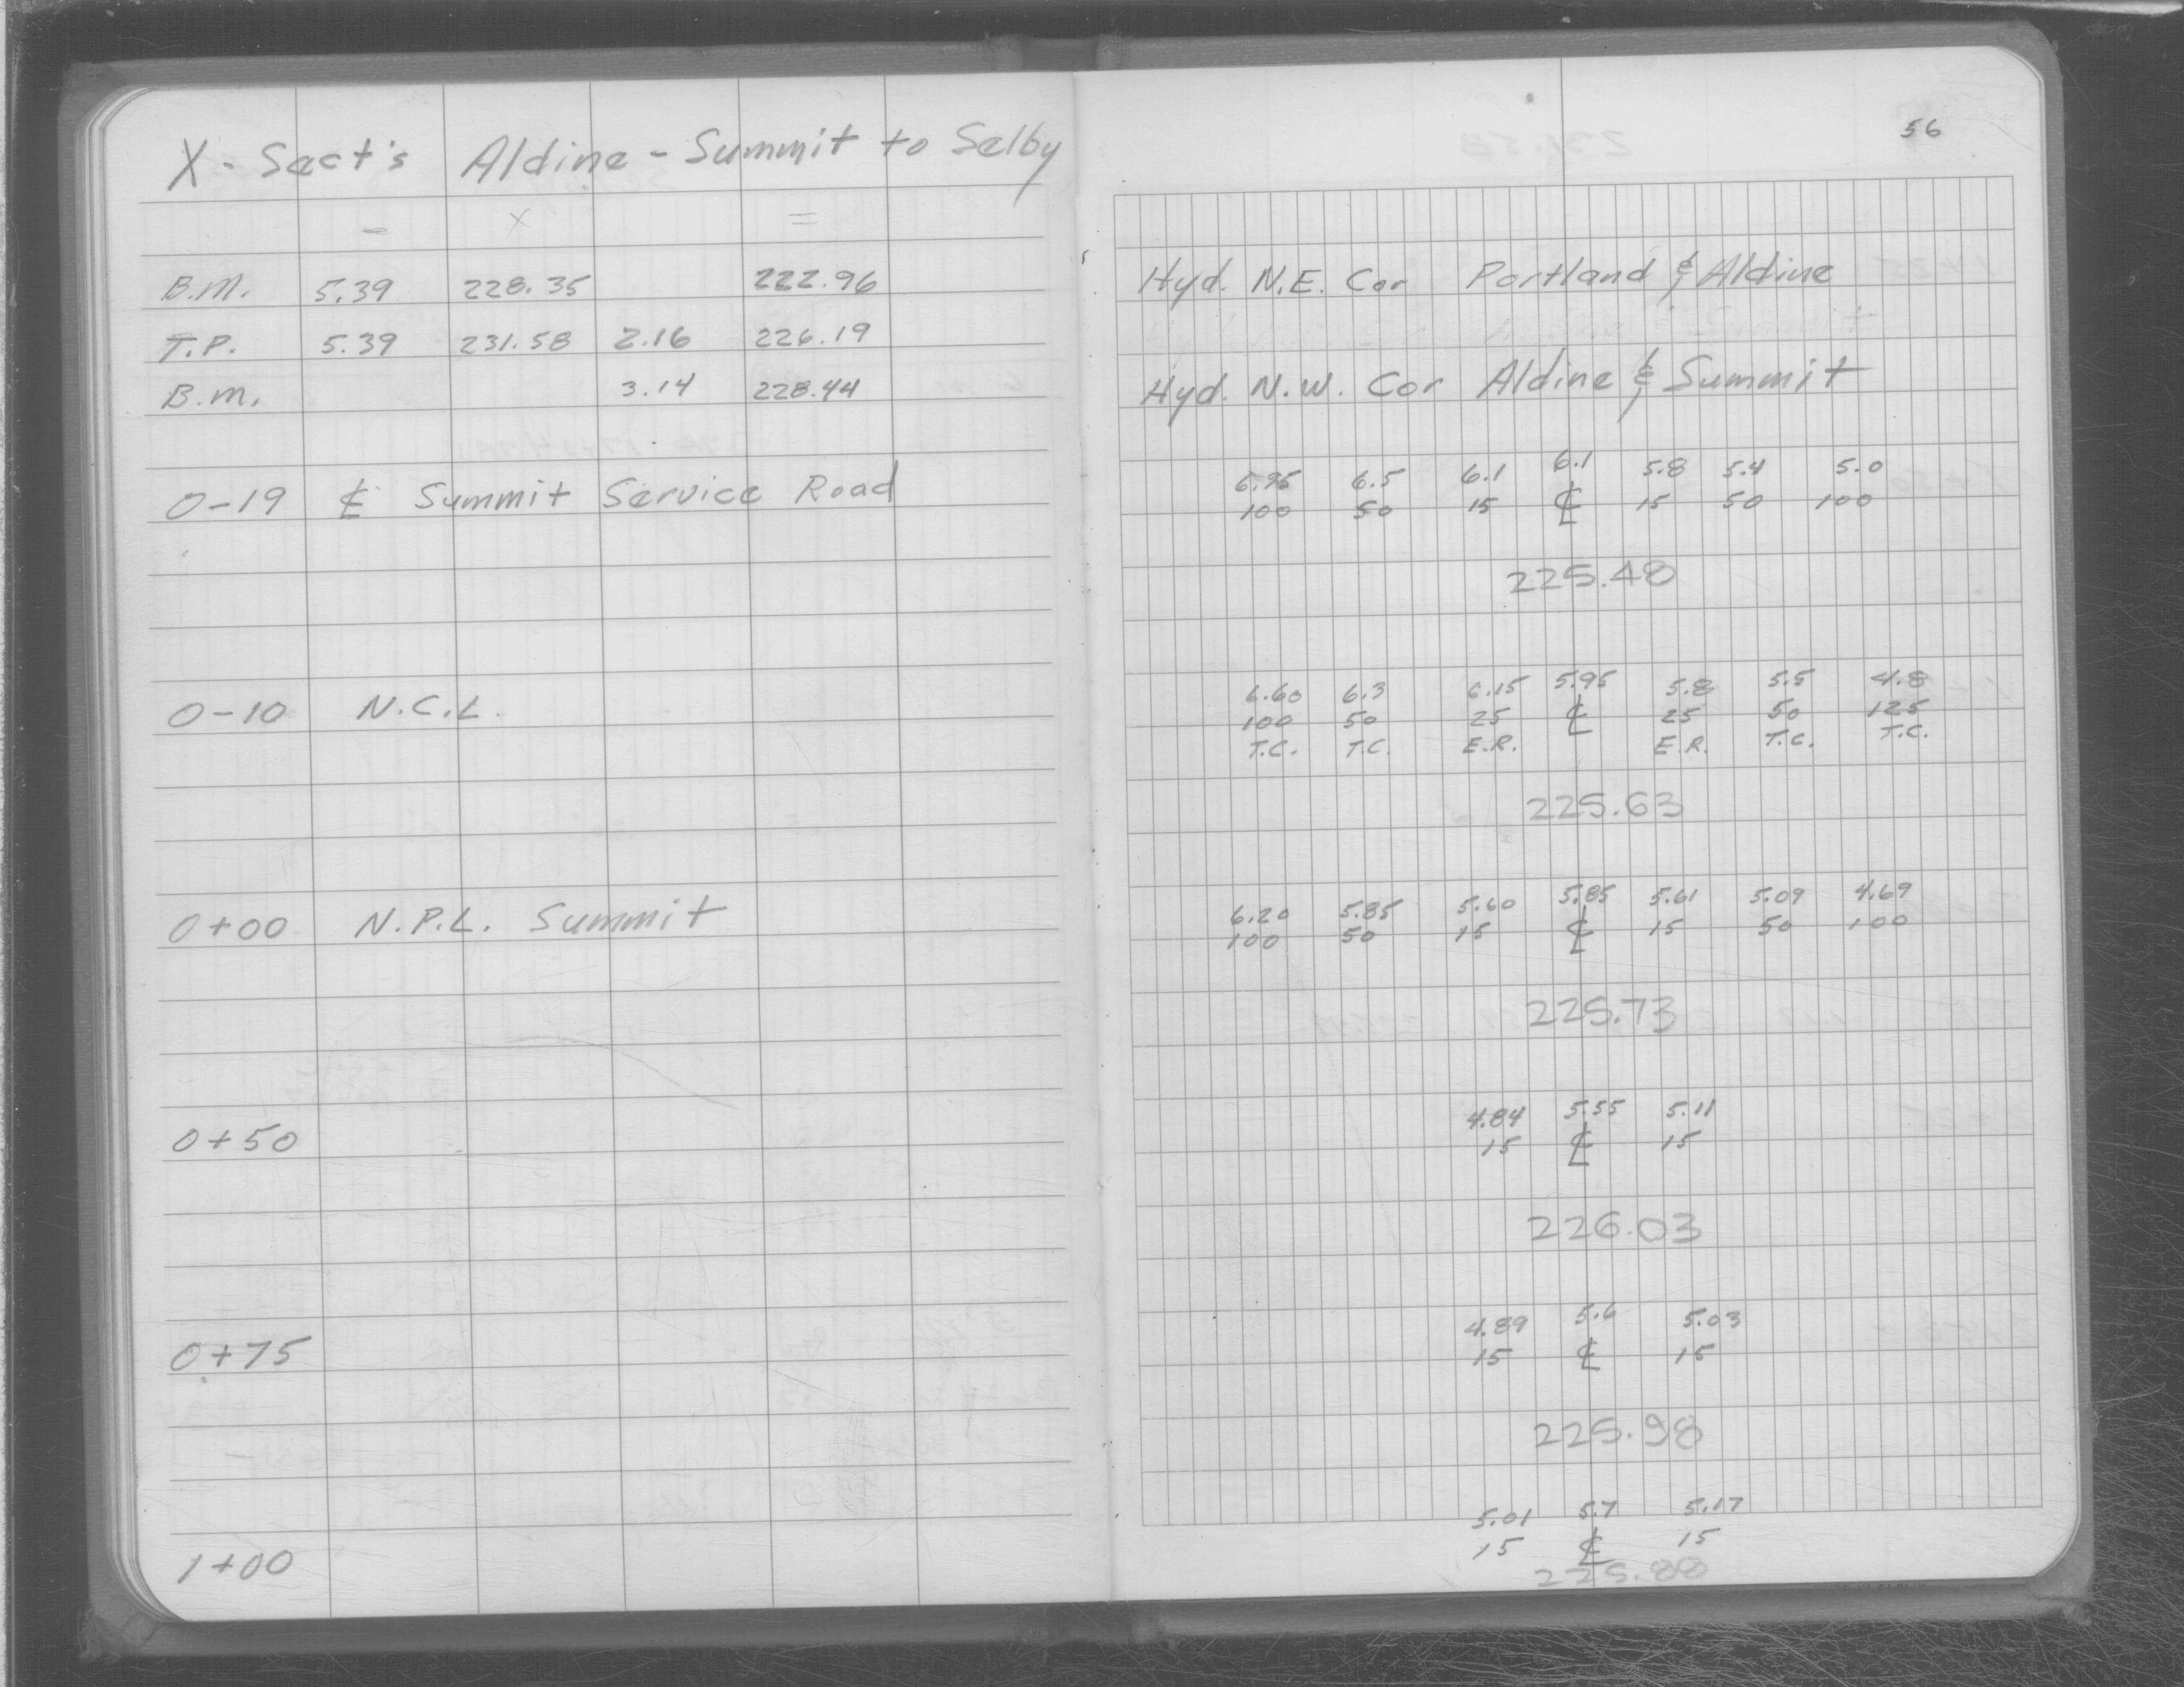 X-Sect's Aldine - Summit to Selby
- X =
B.M. 5.39 228.35 222.96
T.P. 5.39 231.58 2.16 226.19
B.M. 3.14 228.44
0-19 ℄ Summit Service Road
0-10 N.C.L.
0+00 N.P.L. Summit
0+50
0+75
1+00
56
Hyd. N.E. Cor Portland & Aldine
Hyd. N.W. Cor Aldine & Summit
6.95 6.5 6.1 6.1 5.8 5.4 5.0
100 50 15 ℄ 15 50 100
225.48
6.60 6.3 6.15 5.95 5.8 5.5 4.8
100 50 25 ℄ 25 50 125
T.C. T.C. E.R. E.R. T.C. T.C.
225.63
6.20 5.85 5.60 5.85 5.61 5.09 4.69
100 50 15 ℄ 15 50 100
225.73
4.84 5.55 5.11
15 ℄ 15
226.03
4.89 5.6 5.03
15 ℄ 15
225.98
5.01 5.7 5.17
15 ℄ 15
225.88